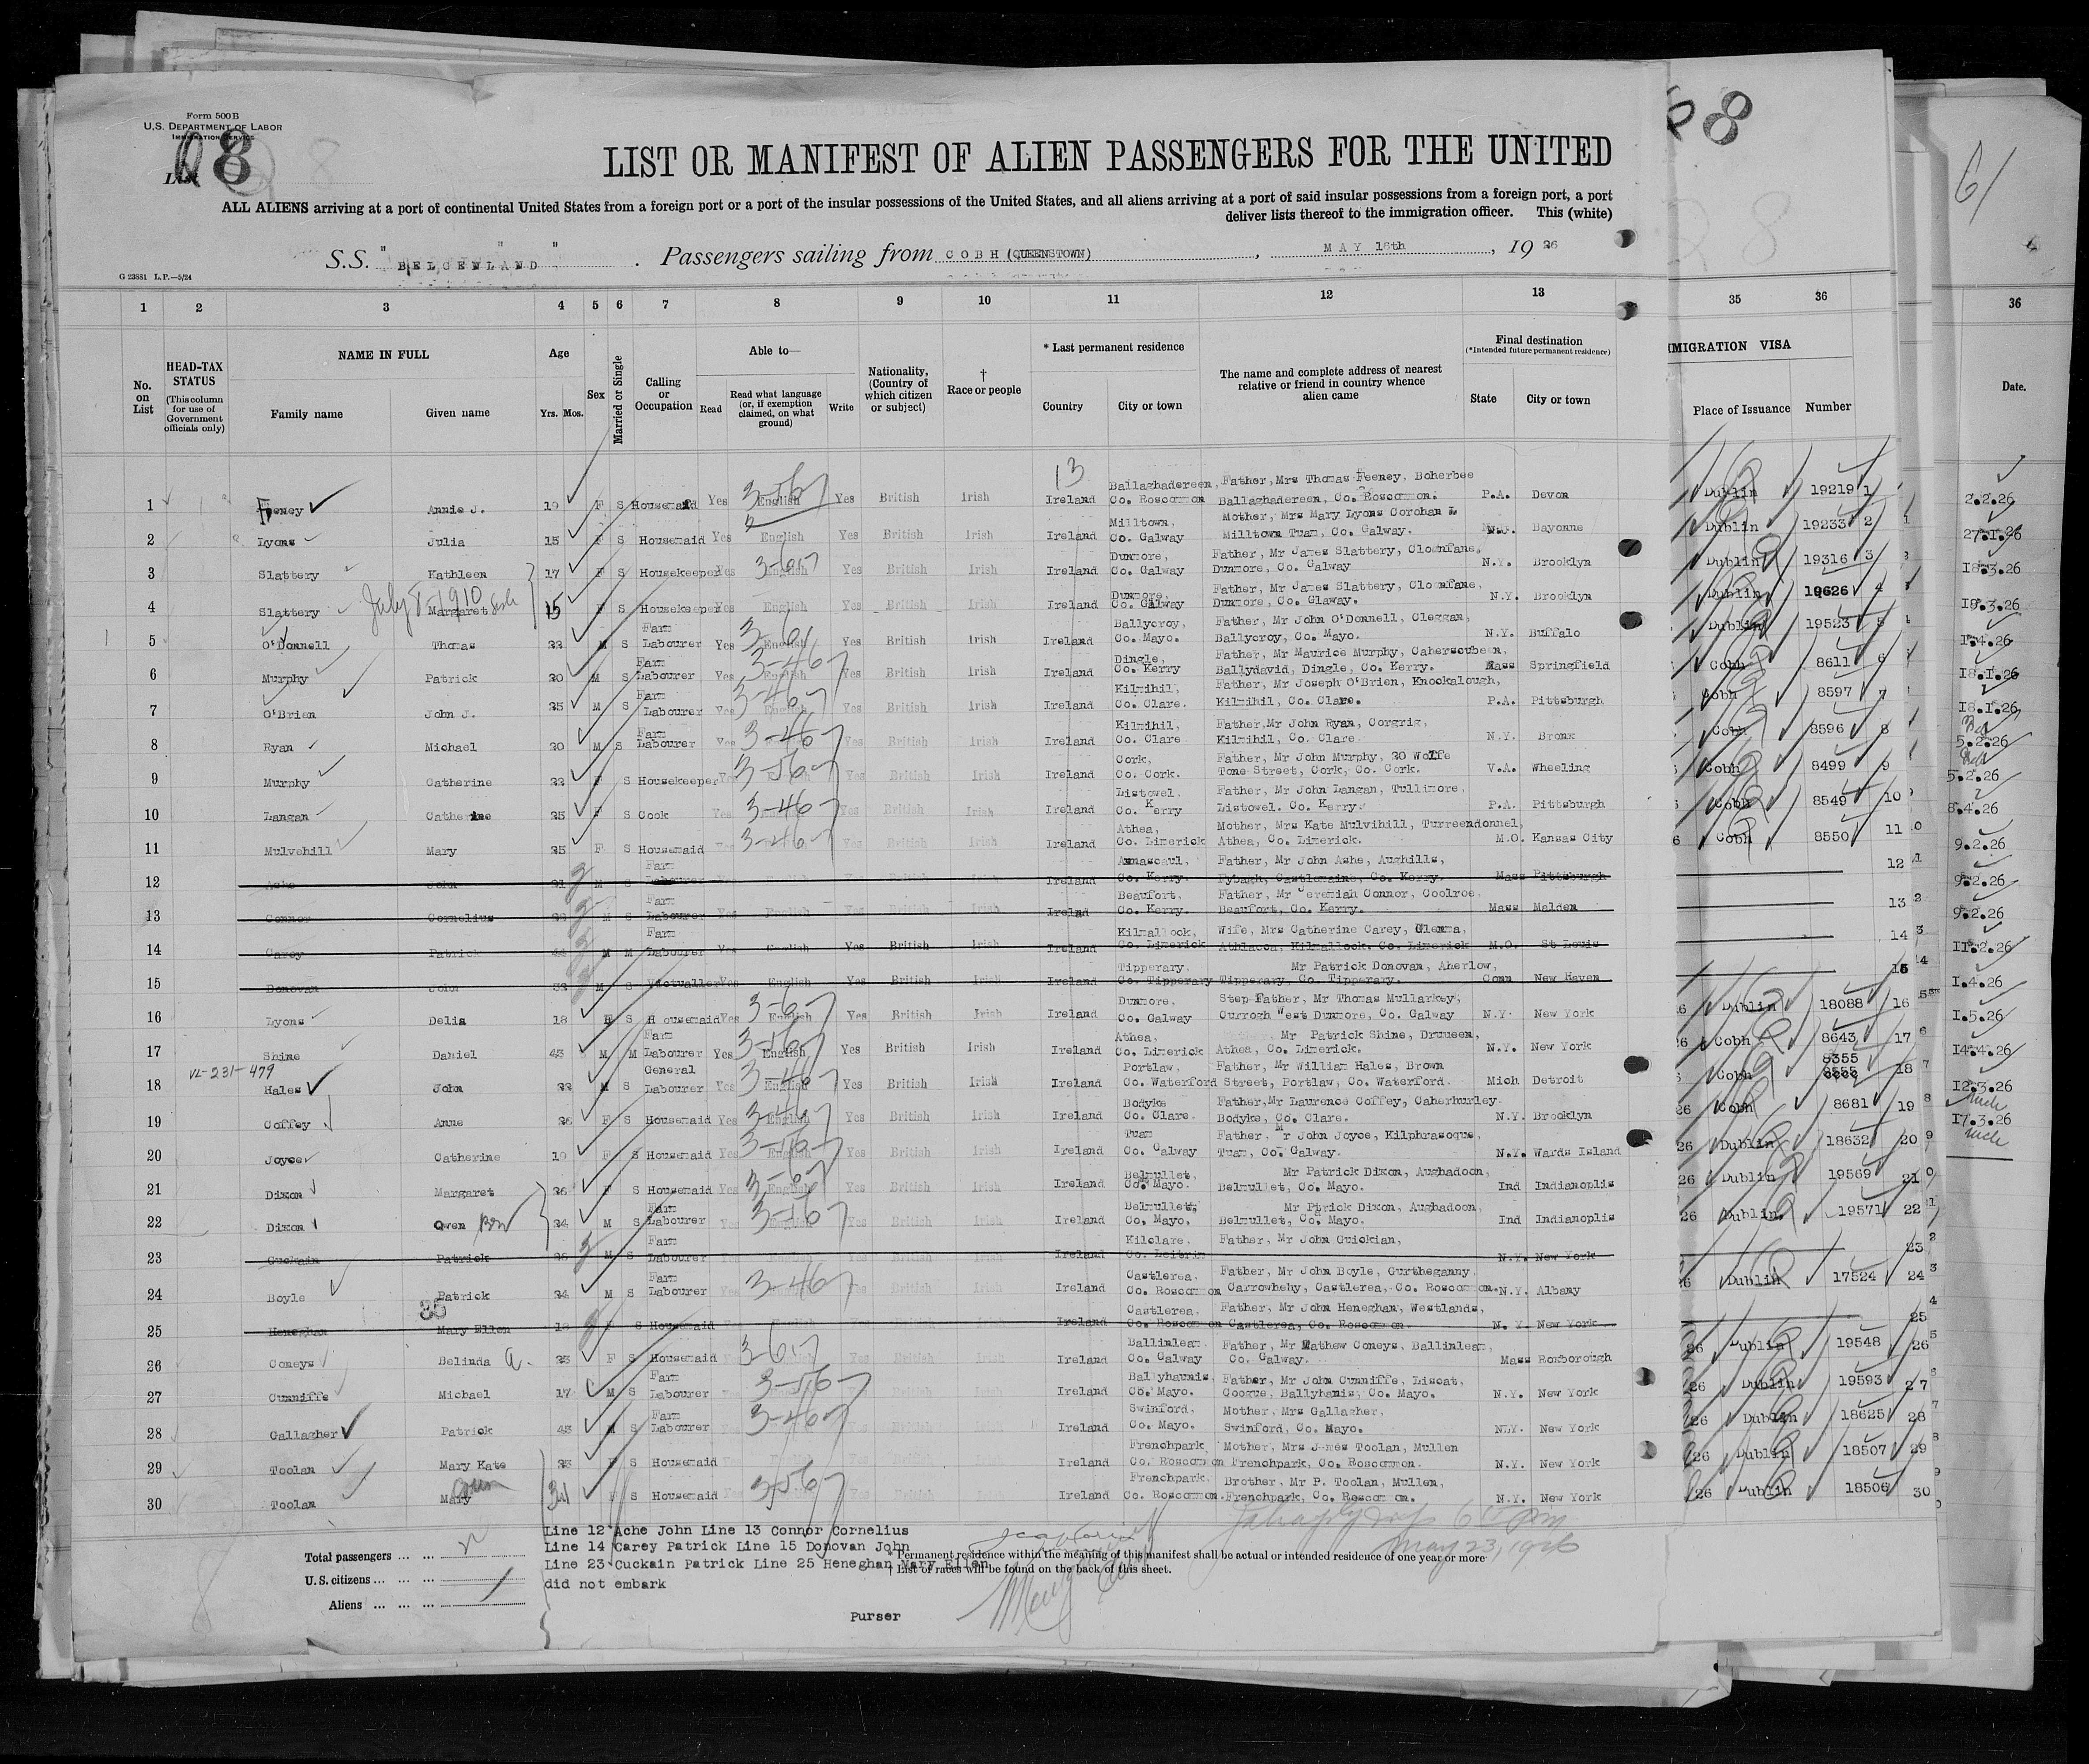 Form 500 B
U.S. DEPARTMENT OF LABOR
IMMIGRATION SERVICE
List 8
LIST OR MANIFEST OF ALIEN PASSENGERS FOR THE UNITED
ALL ALIENS arriving at a port of continental United States from a foreign port or a port of the insular possessions of the United States, and all aliens arriving at a port of said insular possessions from a foreign port, a port
deliver lists thereof to the immigration officer. This (white)
S.S. "BELGENLAND" . Passengers sailing from COBH (QUEENSTOWN), MAY 16th, 1926
G 23881 L.P.—5/24
1 2 3 4 5 6 7 8 9 10 11 12 13 35 36
No. on List
HEAD-TAX STATUS (This column for use of Government officials only)
NAME IN FULL
Family name Given name
Age Yrs. Mos.
Sex
Married or Single
Calling or Occupation
Able to—
Read Read what language (or, if exemption claimed, on what ground) Write
Nationality, (Country of which citizen or subject)
† Race or people
* Last permanent residence
Country City or town
The name and complete address of nearest relative or friend in country whence alien came
Final destination (*Intended future permanent residence)
State City or town
IMMIGRATION VISA
Place of Issuance Number
36
Date.
61
13
1 Feeney Annie J. 19 F S Housemaid Yes English Yes British Irish Ireland Ballaghadereen, Co. Roscommon Father, Mrs Thomas Feeney, Boherbee Ballaghadereen, Co. Roscommon. P.A. Devon Dublin 19219 1
2 Lyons Julia 15 F S Housemaid Yes English Yes British Irish Ireland Milltown, Co. Galway Mother, Mrs Mary Lyons Corohan Milltown Tuam, Co. Galway. Bayonne Dublin 19233 2
3 Slattery Kathleen 17 F S Housekeeper Yes English Yes British Irish Ireland Dunmore, Co. Galway Father, Mr James Slattery, Cloonfane, Dunmore, Co. Galway N.Y. Brooklyn Dublin 19316 3
4 Slattery July 8-1910 Margaret 15 F S Housekeeper Yes English Yes British Irish Ireland Dunmore, Co. Galway Father, Mr James Slattery, Cloonfane, Dunmore, Co. Glaway. N.Y. Brooklyn Dublin 19626 4
5 O'Donnell Thomas 22 M S Farm Labourer Yes English Yes British Irish Ireland Ballycroy, Co. Mayo. Father, Mr John O'Donnell, Cleggan, Ballycroy, Co. Mayo. N.Y. Buffalo Dublin 19523 5
6 Murphy Patrick 20 M S Farm Labourer Yes English Yes British Irish Ireland Dingle, Co. Kerry Father, Mr Maurice Murphy, Caherscubeen, Ballydavid, Dingle, Co. Kerry. Mass Springfield Cobh 8611 6
7 O'Brien John J. 25 M S Farm Labourer Yes English Yes British Irish Ireland Kilmihil, Co. Clare. Father, Mr Joseph O'Brien, Knockalough, Kilmihil, Co. Clare. P.A. Pittsburgh Cobh 8597 7
8 Ryan Michael 20 M S Farm Labourer Yes Yes British Irish Ireland Kilmihil, Co. Clare Father, Mr John Ryan, Corgrig, Kilmihil, Co. Clare N.Y. Bronx Cobh 8596 8
9 Murphy Catherine 22 F S Housekeeper Yes English Yes British Irish Ireland Cork, Co. Cork. Father, Mr John Murphy, 20 Wolfe Tone Street, Cork, Co. Cork. V.A. Wheeling Cobh 8499 9
10 Langan Catherine 25 F S Cook Yes Yes British Irish Ireland Listowel, Co. Kerry Father, Mr John Langan, Tullimore, Listowel. Co. Kerry. P.A. Pittsburgh Cobh 8549 10
11 Mulvehill Mary 25 F S Housemaid Yes Yes British Irish Ireland Athea, Co. Limerick Mother, Mrs Kate Mulvihill, Turreendonnel, Athea, Co. Limerick. M.O. Kansas City Cobh 8550 11
12 Ashe John 21 M S Farm Labourer Ireland Annascaul, Co. Kerry. Father, Mr John Ashe, Aughills, Fybagh, Castlemaine, Co. Kerry. Mass Pittsburgh 12
13 Connor Cornelius M S Farm Labourer Yes English Yes British Irish Ireland Beaufort, Co. Kerry. Father, Mr Jeremiah Connor, Coolroe, Beaufort, Co. Kerry. Mass Malden 13
14 Carey Patrick 44 M M Farm Labourer Yes English Yes British Irish Ireland Kilmallock, Co. Limerick Wife, Mrs Catherine Carey, Athlacca, Kilmallock. Co. Limerick M.O. St Louis 14
15 Donovan John 33 M S Victualler Yes English Yes British Irish Ireland Tipperary, Co. Tipperary Mr Patrick Donovan, Aherlow, Tipperary, Co. Tipperary. Conn New Haven 15
16 Lyons Delia 18 F S Housemaid Yes English Yes British Irish Ireland Dunmore, Co. Galway Step Father, Mr Thomas Mullarkey, Currogh West Dunmore, Co. Galway N.Y. New York Dublin 18088 16
17 Shine Daniel 43 M M Farm Labourer Yes English Yes British Irish Ireland Athea, Co. Limerick Mr Patrick Shine, Drumeen, Athea, Co. Limerick. N.Y. New York Cobh 8643 17
VL-231-479
18 Hales John 22 M S General Labourer Yes English Yes British Irish Ireland Portlaw, Co. Waterford Father, Mr William Hales, Brown Street, Portlaw, Co. Waterford. Mich Detroit Cobh 8355 18
19 Coffey Anne 26 F S Housemaid Yes English Yes British Irish Ireland Bodyke Co. Clare. Father, Mr Laurence Coffey, Caherhurley. Bodyke, Co. Clare. N.Y. Brooklyn Cobh 8681 19
20 Joyce Catherine 19 F S Housemaid Yes English Yes British Irish Ireland Tuam Co. Galway Father, Mr John Joyce, Kilphrasoque, Tuam, Co. Galway. N.Y. Wards Island Dublin 18632 20
21 Dixon Margaret 26 F S Housemaid Yes English Yes British Irish Ireland Belmullet, Co. Mayo. Mr Patrick Dixon, Aughadoon, Belmullet, Co. Mayo. Ind Indianoplis Dublin 19569 21
22 Dixon Owen 24 M S Farm Labourer Yes Yes British Irish Ireland Belmullet, Co. Mayo, Mr Ptrick Dixon, Aughadoon, Belmullet, Co. Mayo. Ind Indianoplis Dublin 19571 22
23 Cuckain Patrick 26 M S Farm Labourer Ireland Kilclare, Co. Leitrim Father, Mr John Guickian, N.Y. New York 23
24 Boyle Patrick 24 M S Farm Labourer Yes British Irish Ireland Castlerea, Co. Roscommon Father, Mr John Boyle, Gurtheganny, Carrowhehy, Castlerea, Co. Roscommon. N.Y. Albany Dublin 17524 24
25 Heneghan Mary Ellen 18 F S Housemaid Ireland Castlerea, Co. Roscommon Father, Mr John Heneghan, Westlands, Castlerea, Co. Roscommon. N.Y. New York 25
26 Coneys Belinda A. 23 F S Housemaid Yes British Irish Ireland Ballinleam Co. Galway Father, Mr Mathew Coneys, Ballinleam, Co. Galway. Mass Roxborough Dublin 19548 26
27 Cunniffe Michael 17 M S Farm Labourer Ireland Ballyhaunis, Co. Mayo. Father, Mr John Cunniffe, Liscat, Coogue, Ballyhanis, Co. Mayo. N.Y. New York Dublin 19593 27
28 Gallagher Patrick 43 M S Farm Labourer Ireland Swinford, Co. Mayo. Mother, Mrs Gallagher, Swinford, Co. Mayo. N.Y. New York Dublin 18625 28
29 Toolan Mary Kate 23 F S Housemaid Ireland Frenchpark, Co. Roscommon Mother, Mrs James Toolan, Mullen Frenchpark, Co. Roscommon. N.Y. New York Dublin 18507 29
30 Toolan Mary Ann 24 F S Housemaid Ireland Frenchpark, Co. Roscommon. Brother, Mr P. Toolan, Mullen, Frenchpark, Co. Roscommon. N.Y. New York Dublin 18506 30
2.2.26
27.1.26
18.3.26
19.3.26
1.4.26
18.1.26
18.1.26
5.2.26
5.2.26
8.4.26
9.2.26
9.2.26
9.2.26
11.2.26
1.4.26
1.5.26
14.4.26
12.3.26
17.3.26
Line 12 Ache John Line 13 Connor Cornelius
Line 14 Carey Patrick Line 15 Donovan John
Line 23 Cuckain Patrick Line 25 Heneghan Mary Ellen
did not embark
Purser
Total passengers
U.S. citizens
Aliens
* Permanent residence within the meaning of this manifest shall be actual or intended residence of one year or more
† List of races will be found on the back of this sheet.
May 23, 1926